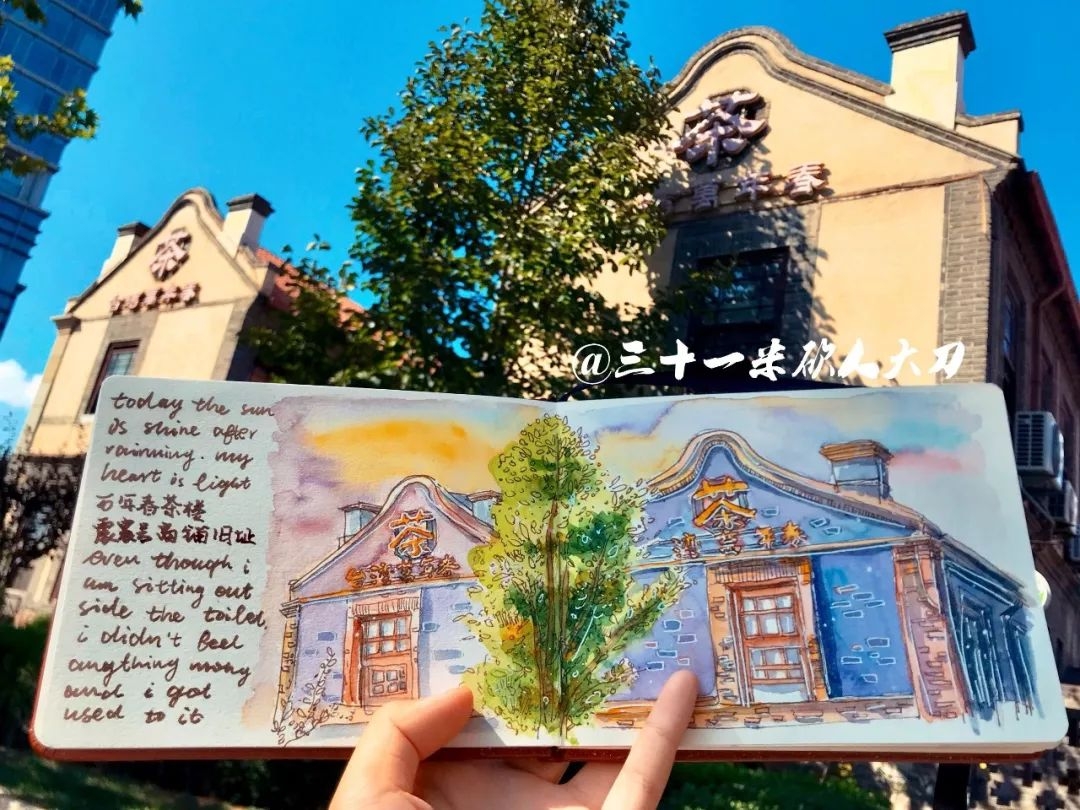 茶
萬年春
茶
@三十一米砍人大刀
today the sun
is shine after
rainning. my
heart is light
万年春茶楼
商铺旧址
even though i
am sitting out
side the toiled,
i didn't feel
anything mony
and i got
used to it
茶
茶